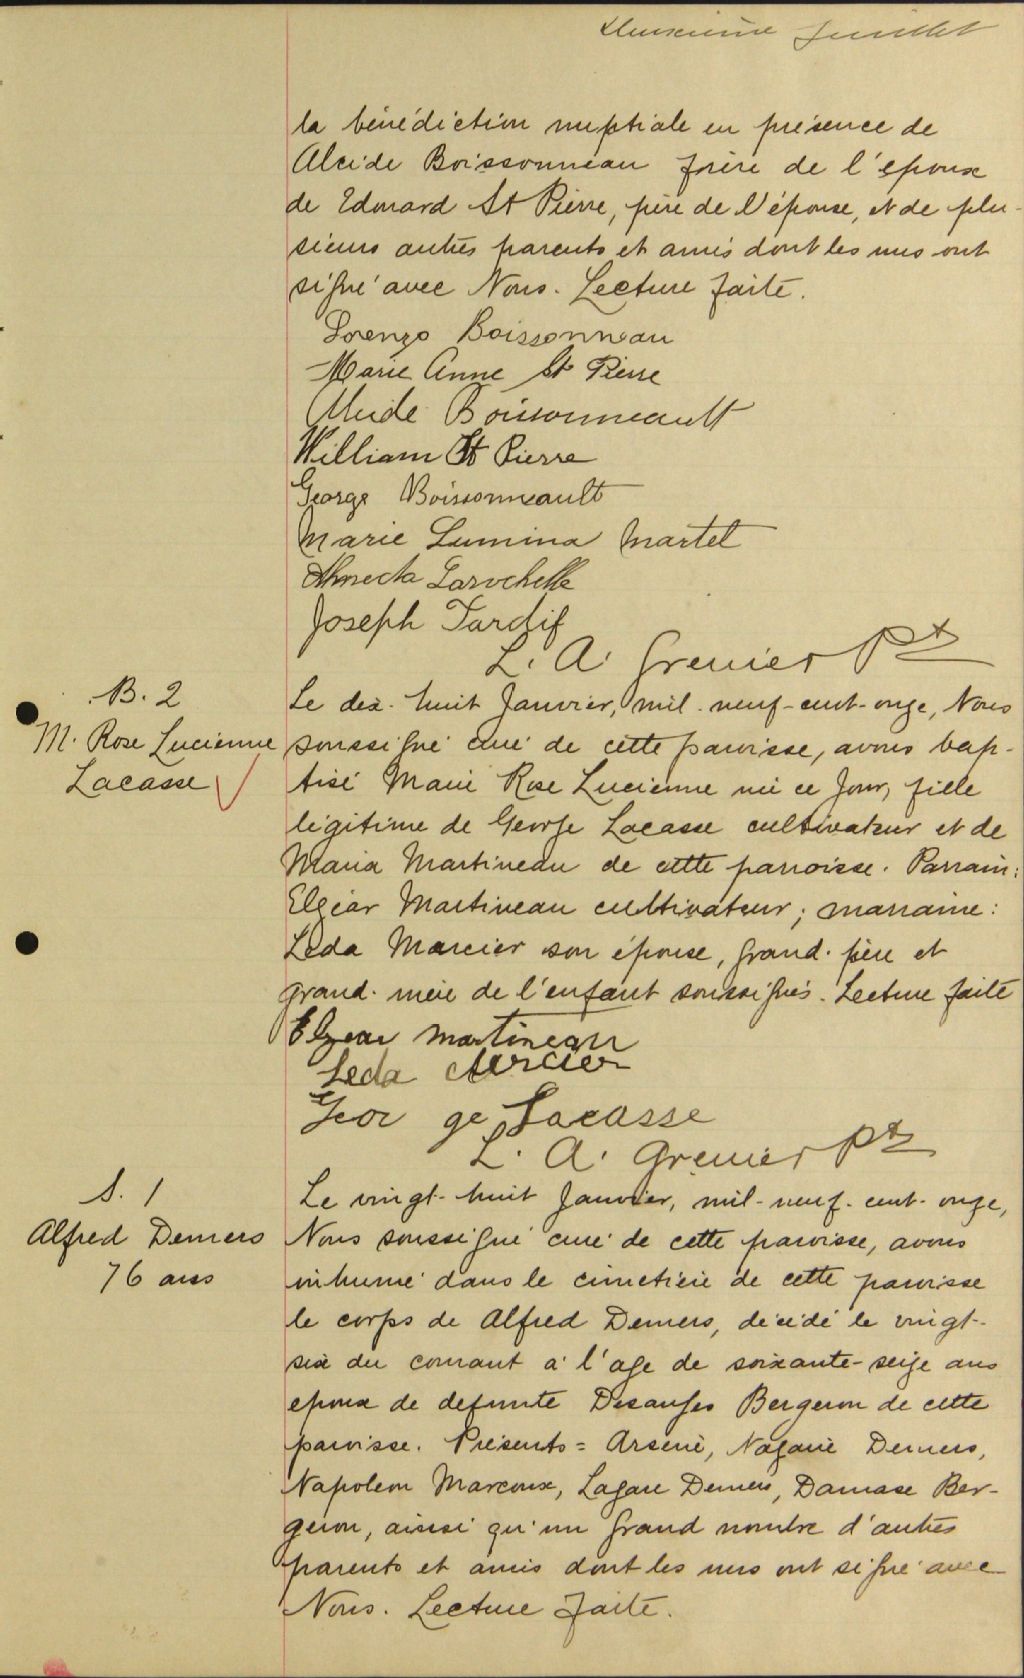 deuxième feuillet
la bénédiction nuptiale en présence de
Alcide Boissonneau frère de l'epoux
de Edouard St Pierre, père de l'épouse, et de plu-
sieurs autres parents et amis dont les uns ont
signé avec Nous. Lecture faite.
Lorenzo Boissonneau
Marie Anne St Pierre
Alcide Boissonneault
William St Pierre
George Boissonneault
Marie Lumina Martel
Larochelle
Joseph Tardif
L. A. Grenier Ptre
B. 2
M. Rose Lucienne
Lacasse
Le dix-huit Janvier, mil-neuf-cent-onze, Nous
soussigné curé de cette paroisse, avons bap-
tisé Marie Rose Lucienne née ce Jour, fille
légitime de George Lacasse cultivateur et de
Maria Martineau de cette parroisse. Parrain:
Elzéar Martineau cultivateur; marraine:
Léda Mercier son épouse, grand-père et
grand-mère de l'enfant soussignés. Lecture faite
Elzear Martineau
Leda Mercier
Geor ge Lacasse
L. A. Grenier Ptre
S. 1
Alfred Demers
76 ans
Le vingt-huit Janvier, mil-neuf-cent-onze,
Nous soussigné curé de cette paroisse, avons
inhumé dans le cimetière de cette paroisse
le corps de Alfred Demers, décédé le vingt-
six du courant à l'age de soixante-seize ans
epoux de defunte Desanges Bergeron de cette
paroisse. Présents = Arsène, Nazaire Demers,
Napoleon Marcoux, Lazare Demers, Damase Ber-
geron, ainsi qu'un grand nombre d'autres
parents et amis dont les uns ont signé avec
Nous. Lecture faite.